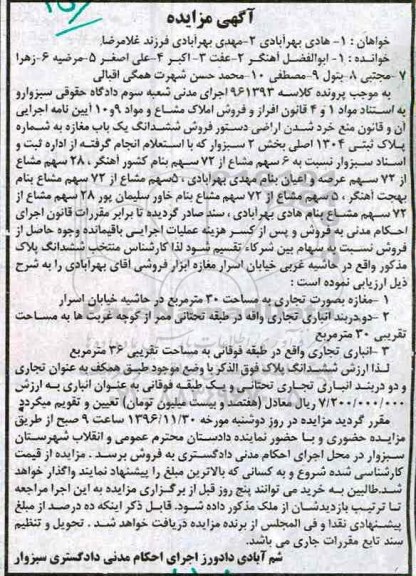 آگهی مزایده
خواهان : ۱- هادی بهرآبادی ۲-مهدی بهرآبادی فرزند غلامرضا
خوانده : ۱- ابوالفضل آهنگر ۲-عفت ۳-اکبر ۴-علی اصغر ۵-مرضیه ۶-زهرا
۷-مجتبی ۸-بتول ۹-مصطفی ۱۰-محمد حسن شهرت همگی اقبالی
به موجب پرونده کلاسه ۹۶۱۳۹۳ اجرای مدنی شعبه سوم دادگاه حقوقی سبزوار و
به استناد مواد ۱ و ۴ قانون افراز و فروش املاک مشاع و مواد ۹ و ۱۰ آیین نامه اجرایی
آن و قانون منع خرد شدن اراضی دستور فروش ششدانگ یک باب مغازه به شماره
پلاک ثبتی ۱۳۰۴ اصلی بخش ۲ سبزوار که با استعلام انجام گرفته از اداره ثبت و
اسناد سبزوار نسبت به ۶ سهم مشاع از ۷۲ سهم بنام کشور آهنگر ، ۲۸ سهم مشاع
از ۷۲ سهم عرصه و اعیان بنام مهدی بهرآبادی ، ۵ سهم مشاع از ۷۲ سهم مشاع بنام
بهجت آهنگر ، ۵ سهم مشاع از ۷۲ سهم مشاع بنام خاور سلیمان پور ۲۸ سهم مشاع از
۷۲ سهم مشاع بنام هادی بهرآبادی ، سند صادر گردیده تا برابر مقررات قانون اجرای
احکام مدنی به فروش و پس از کسر هزینه عملیات اجرایی باقیمانده وجوه حاصل از
فروش نسبت به سهام بین شرکاء تقسیم شود لذا کارشناس منتخب ششدانگ پلاک
مذکور واقع در حاشیه غربی خیابان اسرار مغازه ابزار فروشی آقای بهرآبادی را به شرح
ذیل ارزیابی نموده است :
۱ -مغازه بصورت تجاری به مساحت ۳۰ مترمربع در حاشیه خیابان اسرار
۲ -دودربند انباری تجاری واقه در طبقه تحتانی ممر از کوچه غربت ها به مساحت
تقریبی ۳۰ مترمربع
۳ -انباری تجاری واقع در طبقه فوقانی به مساحت تقریبی ۳۶ مترمربع
لذا ارزش ششدانگ پلاک فوق الذکر با وضع موجود طبق همکف به عنوان تجاری
و دو دربند انباری تجاری تحتانی و یک طبقه فوقانی به عنوان انباری به ارزش
۷/۲۰۰/۰۰۰/۰۰۰ ریال معادل (هفتصد و بیست میلیون تومان) تعیین و تقویم میگردد
مقرر گردید مزایده در روز دوشنبه مورخه ۱۳۹۶/۱۱/۳۰ ساعت ۹ صبح از طریق
مزایده حضوری و با حضور نماینده دادستان محترم عمومی و انقلاب شهرستان
سبزوار در محل اجرای احکام مدنی دادگستری به فروش برسد . مزایده از قیمت
کارشناسی شده شروع و به کسانی که بالاترین مبلغ را پیشنهاد نمایند واگذار خواهد
شد.طالبین به خرید می توانند پنج روز قبل از برگزاری مزایده به این اجرا مراجعه
تا ترتیب بازدیدشان از ملک مذکور داده شود. قابل ذکر اینکه ده درصد از مبلغ
پیشنهادی نقدا و فی المجلس از برنده مزایده دریافت خواهد شد . تحویل و تنظیم
سند تابع مقررات جاری می باشد.
شم آبادی دادورز اجرای احکام مدنی دادگستری سبزوار